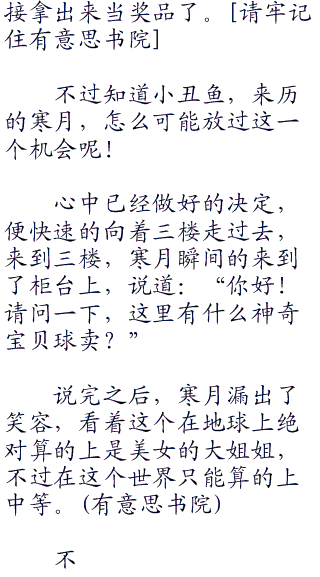 接拿出来当奖品了。[请牢记
住有意思书院]
不过知道小丑鱼，来历
的寒月，怎么可能放过这一
个机会呢！
心中已经做好的决定，
便快速的向着三楼走过去，
来到三楼，寒月瞬间的来到
了柜台上，说道：“你好！
请问一下，这里有什么神奇
宝贝球卖？”
说完之后，寒月漏出了
笑容，看着这个在地球上绝
对算的上是美女的大姐姐，
不过在这个世界只能算的上
中等。(有意思书院)
不